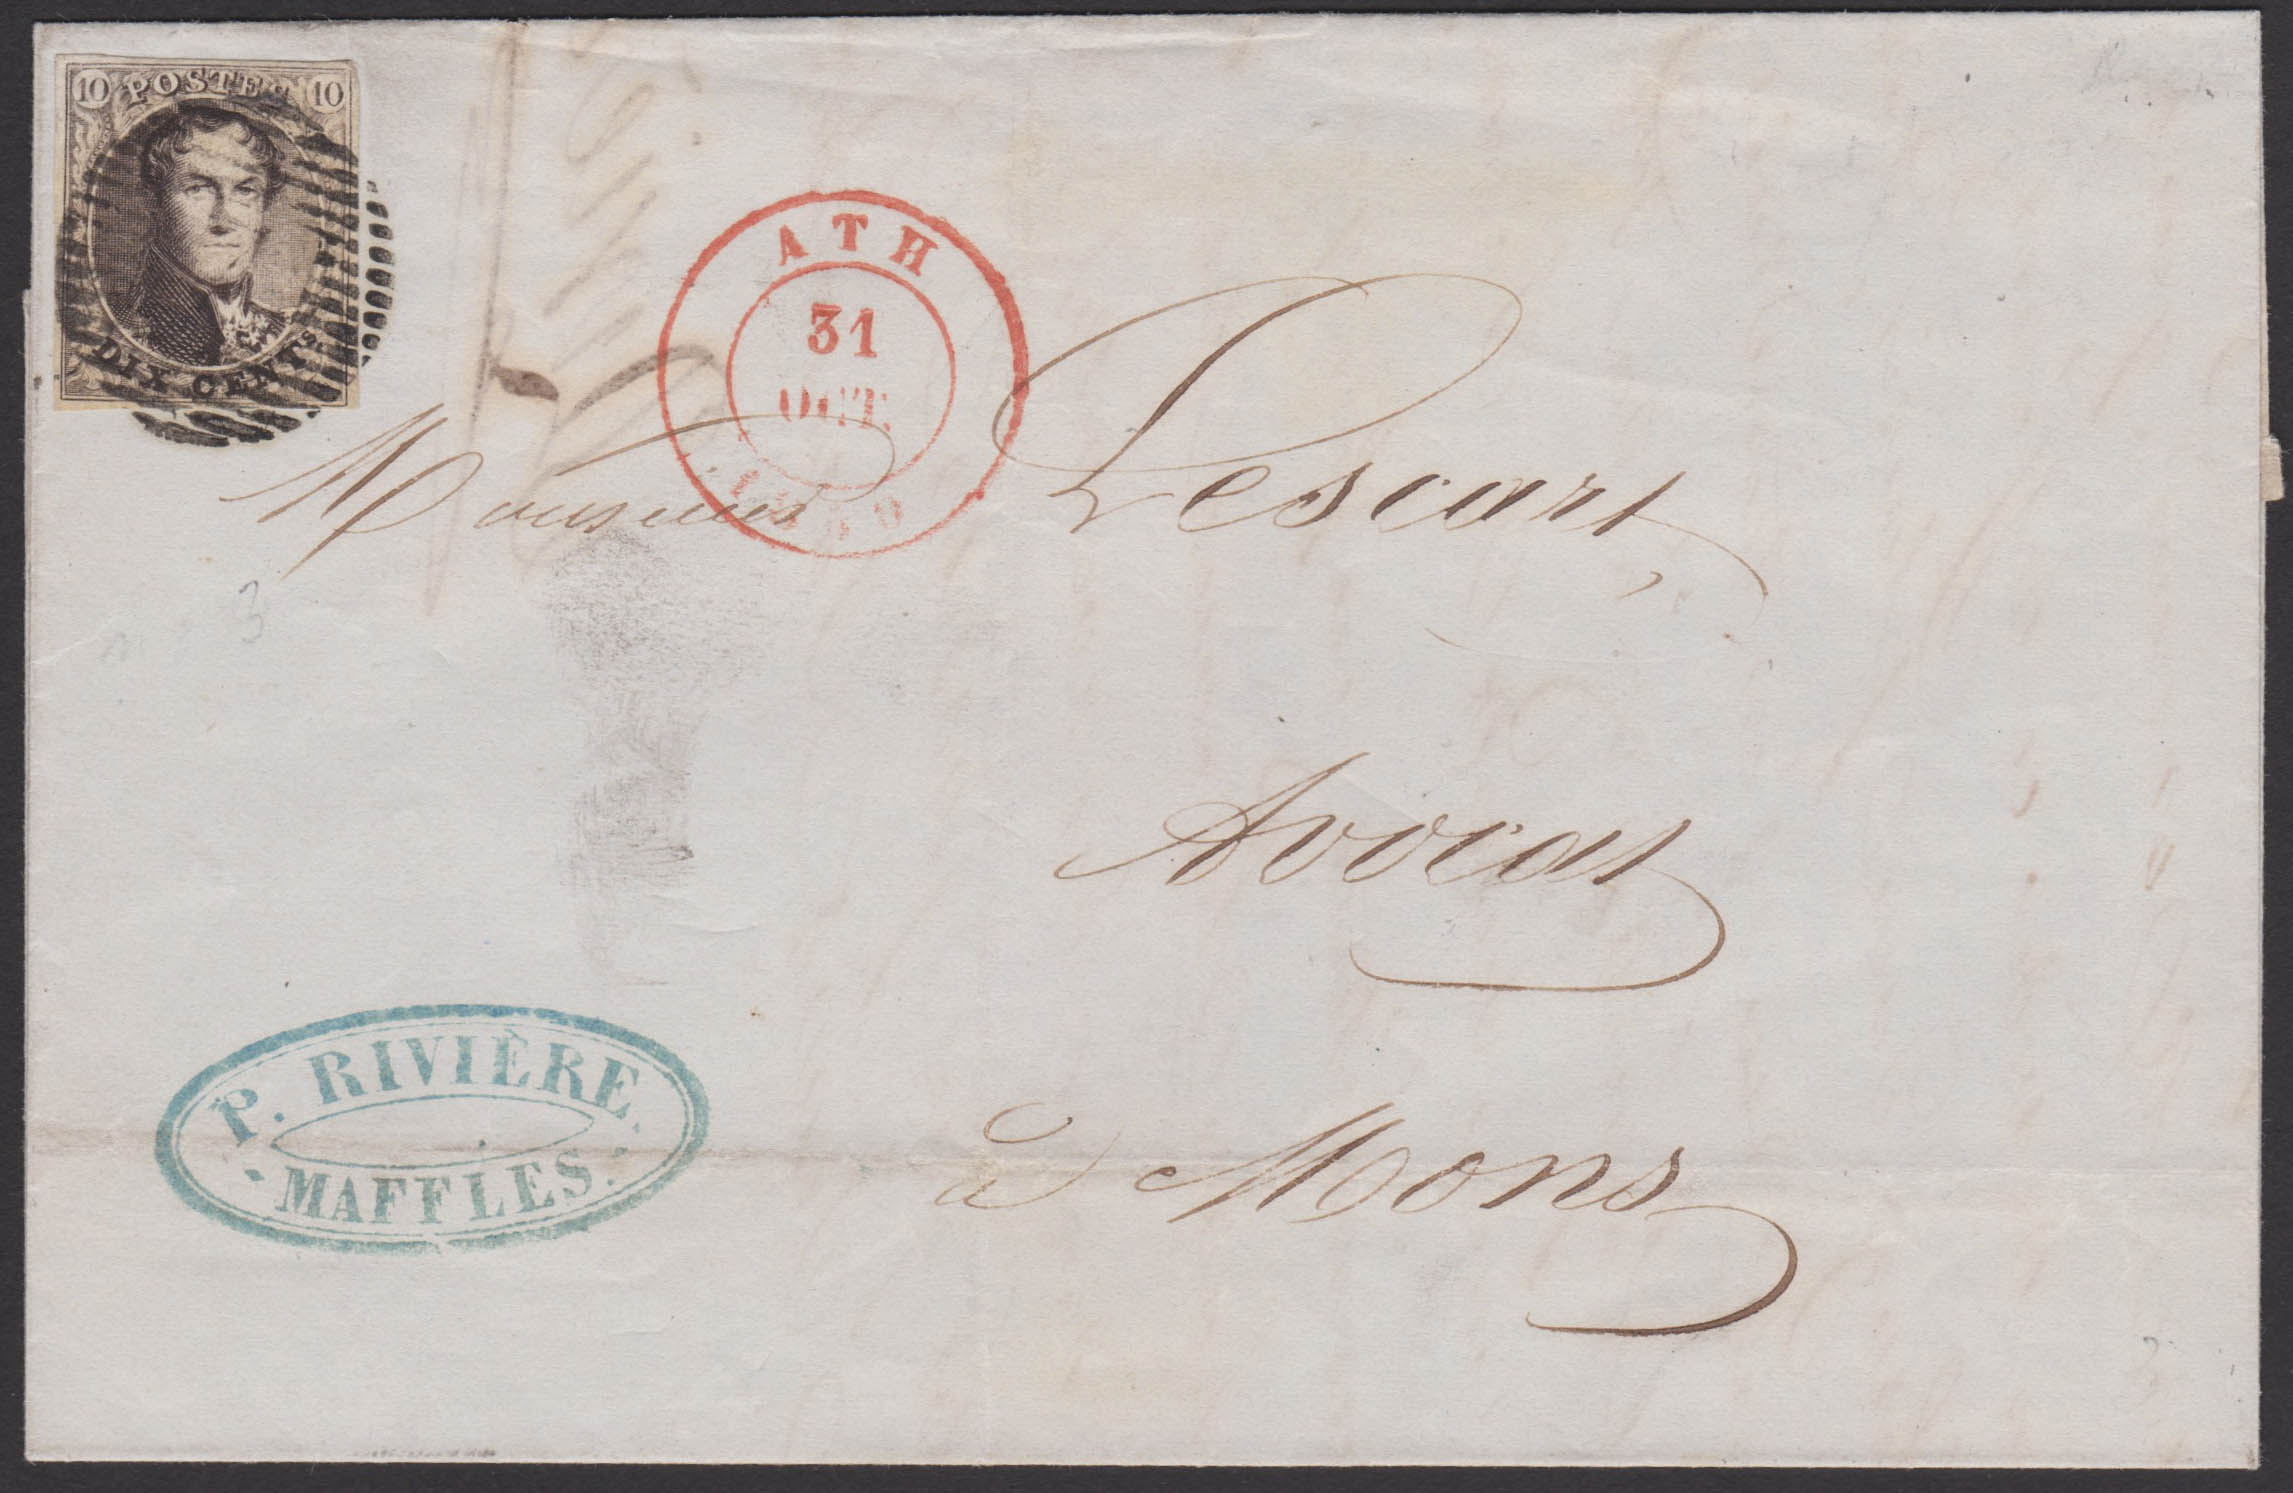 10 POSTES 10
DIX CENTS.
ATH
31
OCT.
1850
Monsieur Lescart,
Avocat
à Mons
P. RIVIÈRE.
MAFFLES.
3